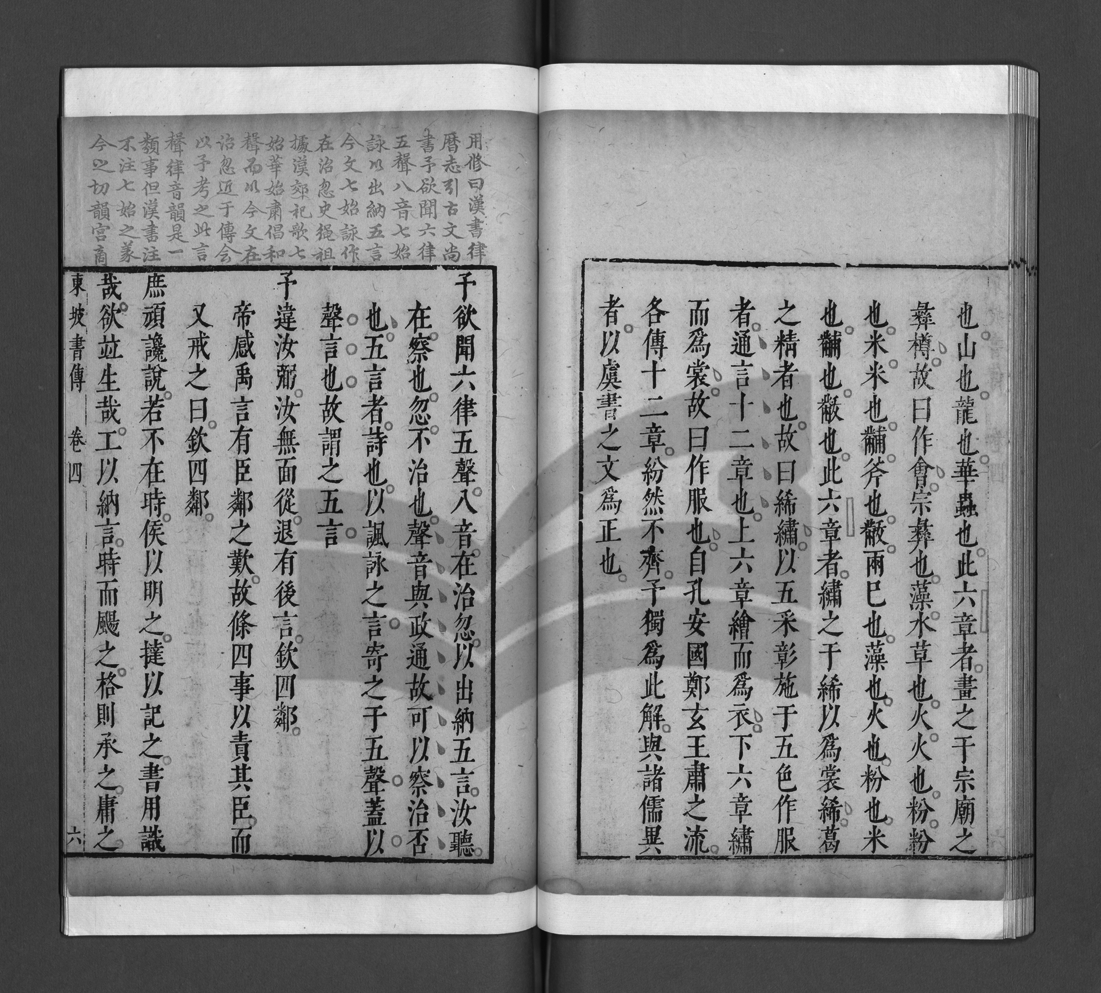 也山也龍也華蟲也此六章者畫之于宗廟之
彝樽故曰作會宗彝也藻水草也火火也粉粉
也米米也黼斧也黻兩巳也藻也火也粉也米
也黼也黻也此六章者繡之于絺以爲裳絺葛
之精者也故曰絺繡以五采彰施于五色作服
者通言十二章也上六章繪而爲衣下六章繡
而爲裳故曰作服也自孔安國鄭玄王肅之流
各傳十二章紛然不齊予獨爲此解與諸儒異
者以虞書之文爲正也
用修曰漢書律
曆志引古文尚
書予欲聞六律
五聲八音七始
詠以出納五言
今文七始詠作
在治忽史繩祖
據漢郊祀歌七
始華始肅倡和
聲而以今文在
治忽近于傅會
以予考之此言
聲律音韻是一
類事但漢書注
不注七始之義
今之切韻宮商
予欲聞六律五聲八音在治忽以出納五言汝聽
在察也忽不治也聲音與政通故可以察治否
也五言者詩也以諷詠之言寄之于五聲蓋以
聲言也故謂之五言
予違汝弼汝無面從退有後言欽四鄰
帝感禹言有臣鄰之歎故條四事以責其臣而
又戒之曰欽四鄰
庶頑讒說若不在時侯以明之撻以記之書用識
哉欲竝生哉工以納言時而颺之格則承之庸之
東坡書傳 卷四 六